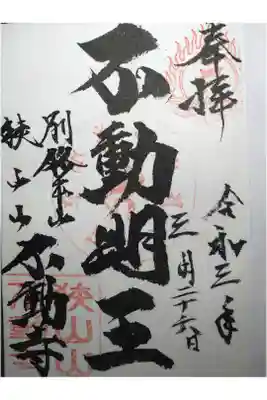 奉拝
令和三年
三月二十六日
不動明王
別格本山
狭山山不動寺